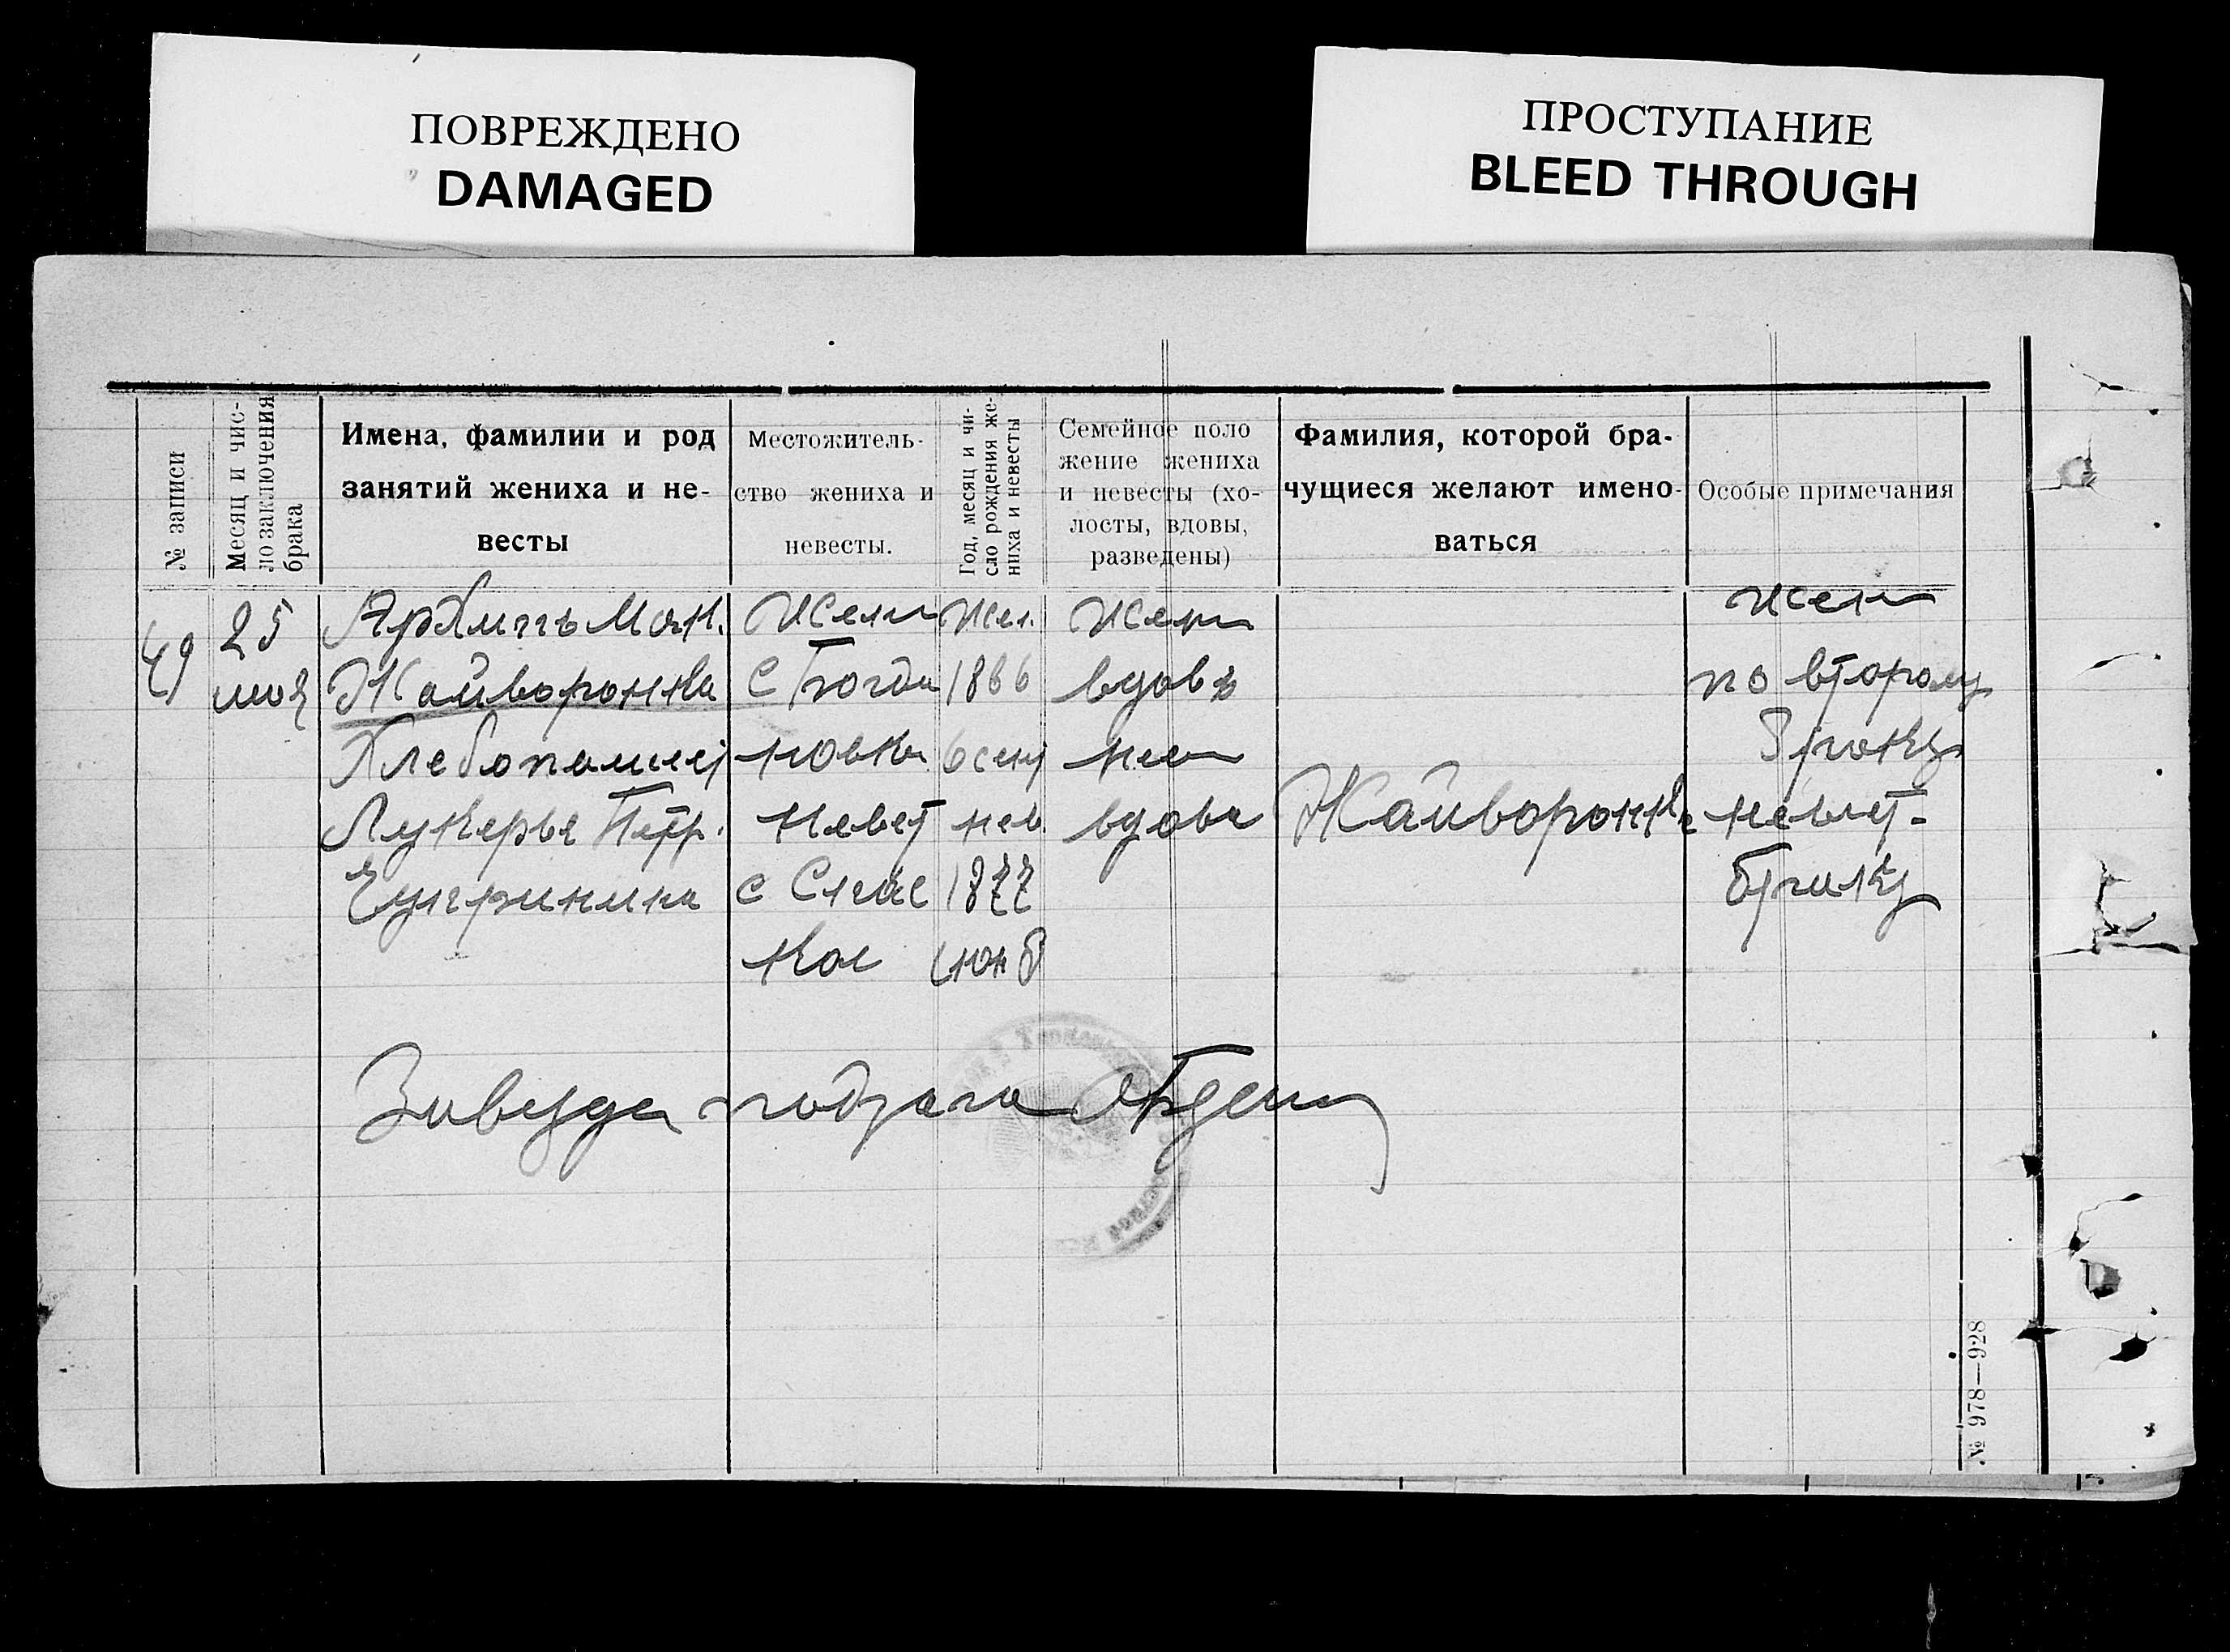 ПОВРЕЖДЕНО
DAMAGED
ПРОСТУПАНИЕ
BLEED THROUGH
№ записи
Месяц и чис-
ло заключения
брака
Имена, фамилии и род
занятий жениха и не-
весты
Местожитель-
ство жениха и
невесты.
Год, месяц и чи-
сло рождения же-
ниха и невесты
Семейное поло
жение жениха
и невесты (хо-
лосты, вдовы,
разведены)
Фамилия, которой бра-
чущиеся желают имено-
ваться
Особые примечания
49
25
мая
Жайворонка
Хлебопашец
Лукерья Петр.
с Богда
новка
Невест
с Спас
кое
1866
6 сент
нев
1877
вдов
нев
вдова
Жайворонка
жен
по второму
браку
невест-
браку
№ 978—928